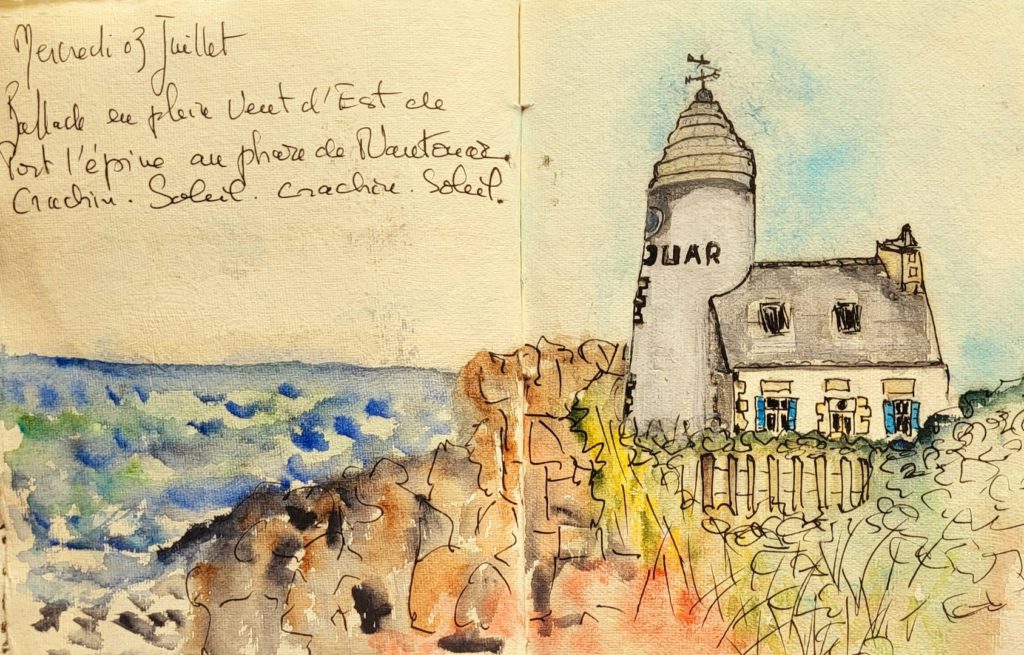 Mercredi 03 Juillet
Ballade en plein Vent d'Est de
Port l'épine au phare de Nantouar.
Crachin. Soleil. Crachin. Soleil.
OUAR